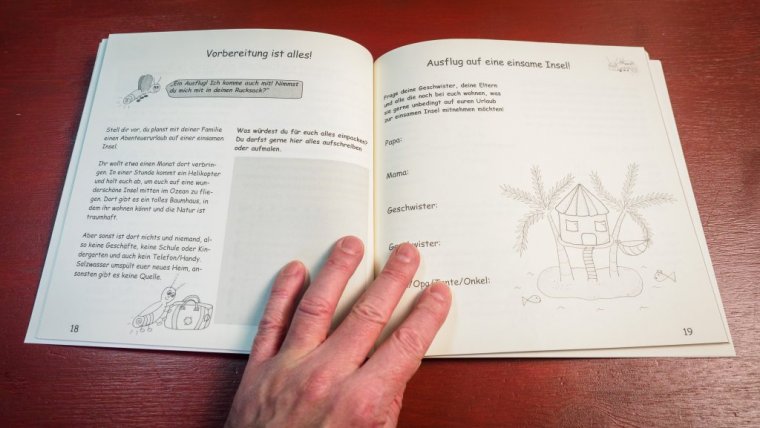 Vorbereitung ist alles!
„Ein Ausflug! Ich komme auch mit! Nimmst
du mich mit in deinen Rucksack?"
Stell dir vor, du planst mit deiner Familie
einen Abenteuerurlaub auf einer einsamen
Insel.
Ihr wollt etwa einen Monat dort verbrin-
gen. In einer Stunde kommt ein Helikopter
und holt euch ab, um euch auf eine wun-
derschöne Insel mitten im Ozean zu flie-
gen. Dort gibt es ein tolles Baumhaus, in
dem ihr wohnen könnt und die Natur ist
traumhaft.
Aber sonst ist dort nichts und niemand, al-
so keine Geschäfte, keine Schule oder Kin-
dergarten und auch kein Telefon/Handy.
Salzwasser umspült euer neues Heim, an-
sonsten gibt es keine Quelle.
Was würdest du für euch alles einpacken?
Du darfst gerne hier alles aufschreiben
oder aufmalen.
18
Ausflug auf eine einsame Insel!
Frage deine Geschwister, deine Eltern
und alle die noch bei euch wohnen, was
sie gerne unbedingt auf euren Urlaub
zur einsamen Insel mitnehmen möchten!
Papa:
Mama:
Geschwister:
Geschwister:
/Opa/Tante/Onkel:
19